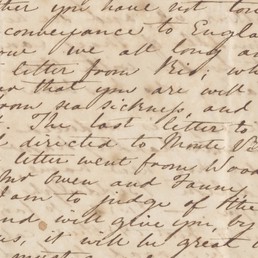 you have not
conveyance to Engla
we all long
letter from Rio, wh
that you are well
from sea sickness, and
The last letter to
directed to Monte V
letter went from Wood
Mr Owen and Fanny
am to judge of the
and will give you, by
us, it will be great